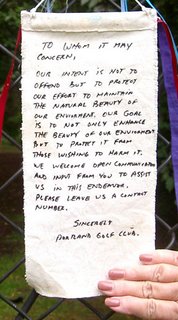 TO WHOM IT MAY
CONCERN,
OUR INTENT IS NOT TO
OFFEND BUT TO PROTECT
OUR EFFORT TO MAINTAIN
THE NATURAL BEAUTY OF
OUR ENVIRMENT. OUR GOAL
IS TO NOT ONLY ENHANCE
THE BEAUTY OF OUR ENVIORMENT
BUT TO PROTECT IT FROM
THOSE WISHING TO HARM IT.
WE WELCOME OPEN COMMUNICATION
AND INPUT FROM YOU TO ASSIST
US IN THIS ENDEAVOR.
PLEASE LEAVE US A CONTACT
NUMBER.
SINCERELY
PORTLAND GOLF CLUB.